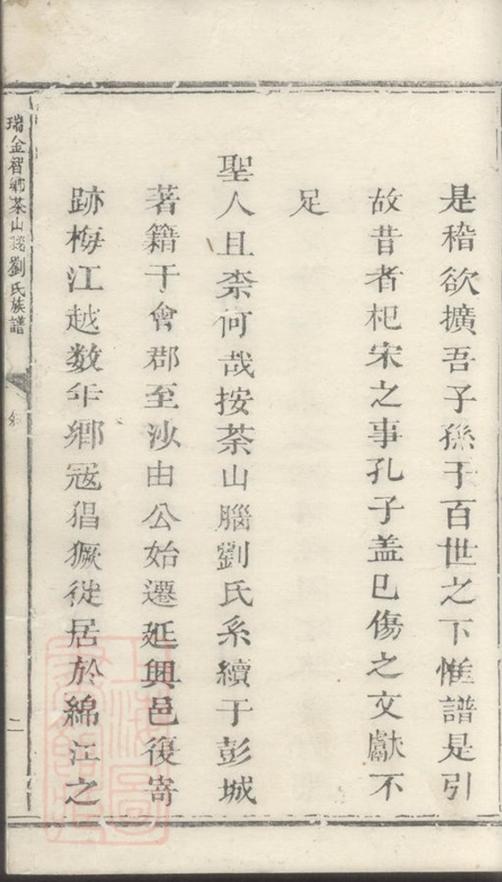 是稽欲擴吾子孫于百世之下惟譜是引
故昔者杞宋之事孔子盖巳傷之文獻不
足
聖人且柰何哉按茶山腦劉氏系續于彭城
著籍于會郡至沙由公始遷延興邑復寄
跡梅江越数年鄉冦猖獗徙居於綿江之
瑞金智鄉茶山劉氏族譜
二